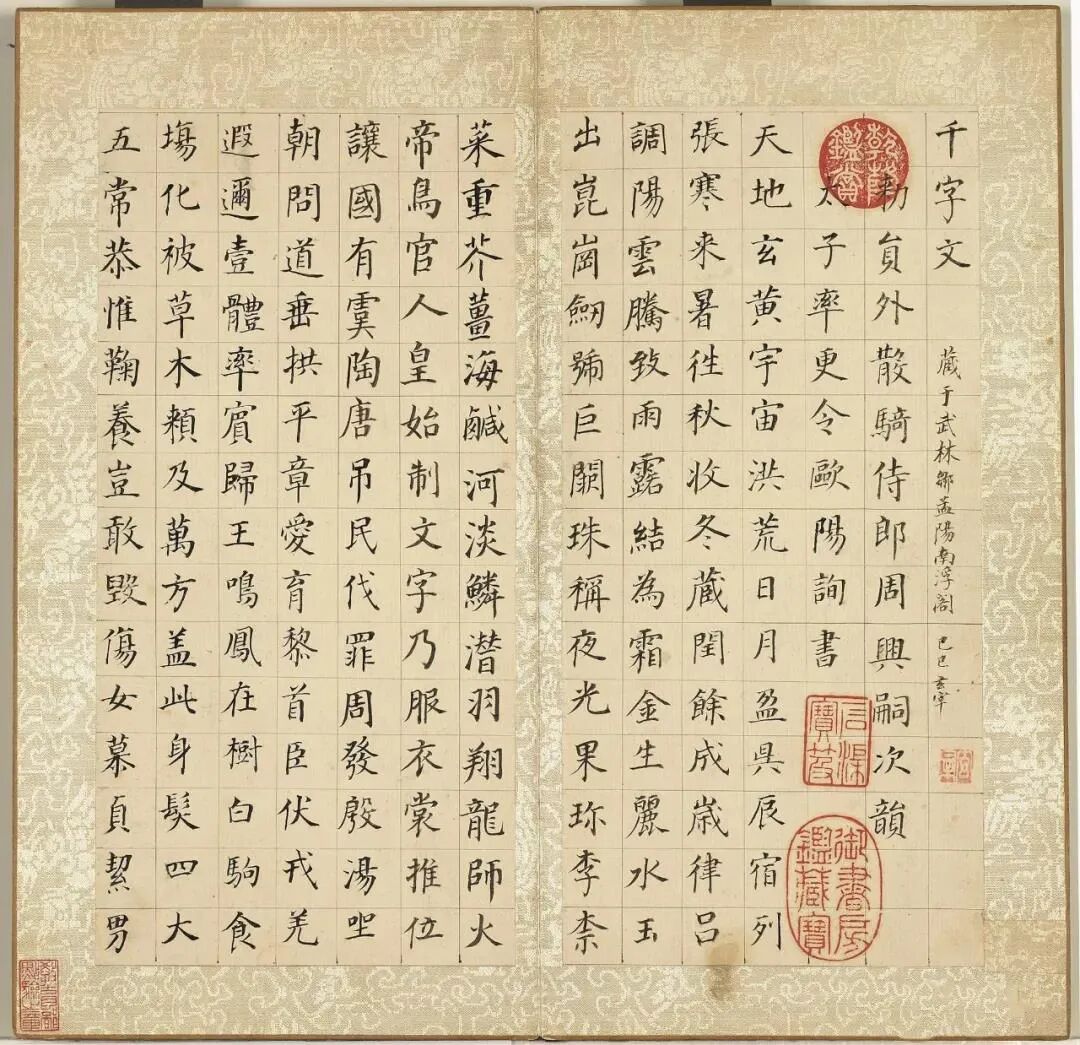 千字文
蔵于武林鄒孟陽南浮閣 己巳玄宰
勑員外散騎侍郎周興嗣次韻
太子率更令歐陽詢書
乾隆鑑賞
石渠寶笈
御書房鑑藏寶
天地玄黃宇宙洪荒日月盈昃辰宿列
張寒来暑徃秋收冬蔵閏餘成歲律呂
調陽雲騰致雨露結為霜金生麗水玉
出崑崗劒號巨闕珠稱夜光果珎李柰
菜重芥薑海鹹河淡鱗潛羽翔龍師火
帝鳥官人皇始制文字乃服衣裳推位
讓國有虞陶唐吊民伐罪周發殷湯坐
朝問道垂拱平章愛育黎首臣伏戎羌
遐邇壹體率賓歸王鳴鳳在樹白駒食
塲化被草木賴及萬方盖此身髮四大
五常恭惟鞠養豈敢毀傷女慕貞絜男